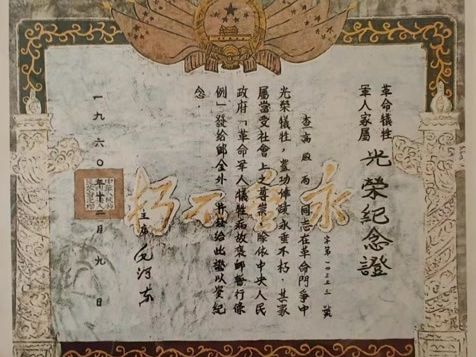 革命犧牲
軍人家屬
光榮紀念證
字第
號
查高同志在革命鬥爭中
光榮犧牲，豐功偉績永垂不朽，其家
屬當受社會上之尊崇。除依中央人民
政府「革命軍人犧牲病故褒卹暫行條
例」發給卹金外，并發給此證以資紀
念
主席 毛澤東
一九六〇年十二月九日
永垂不朽